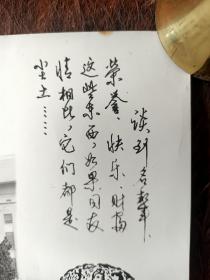 谈到名声、
荣誉、快乐、财富
这些东西，如果同友
情相比，它们都是
尘土……